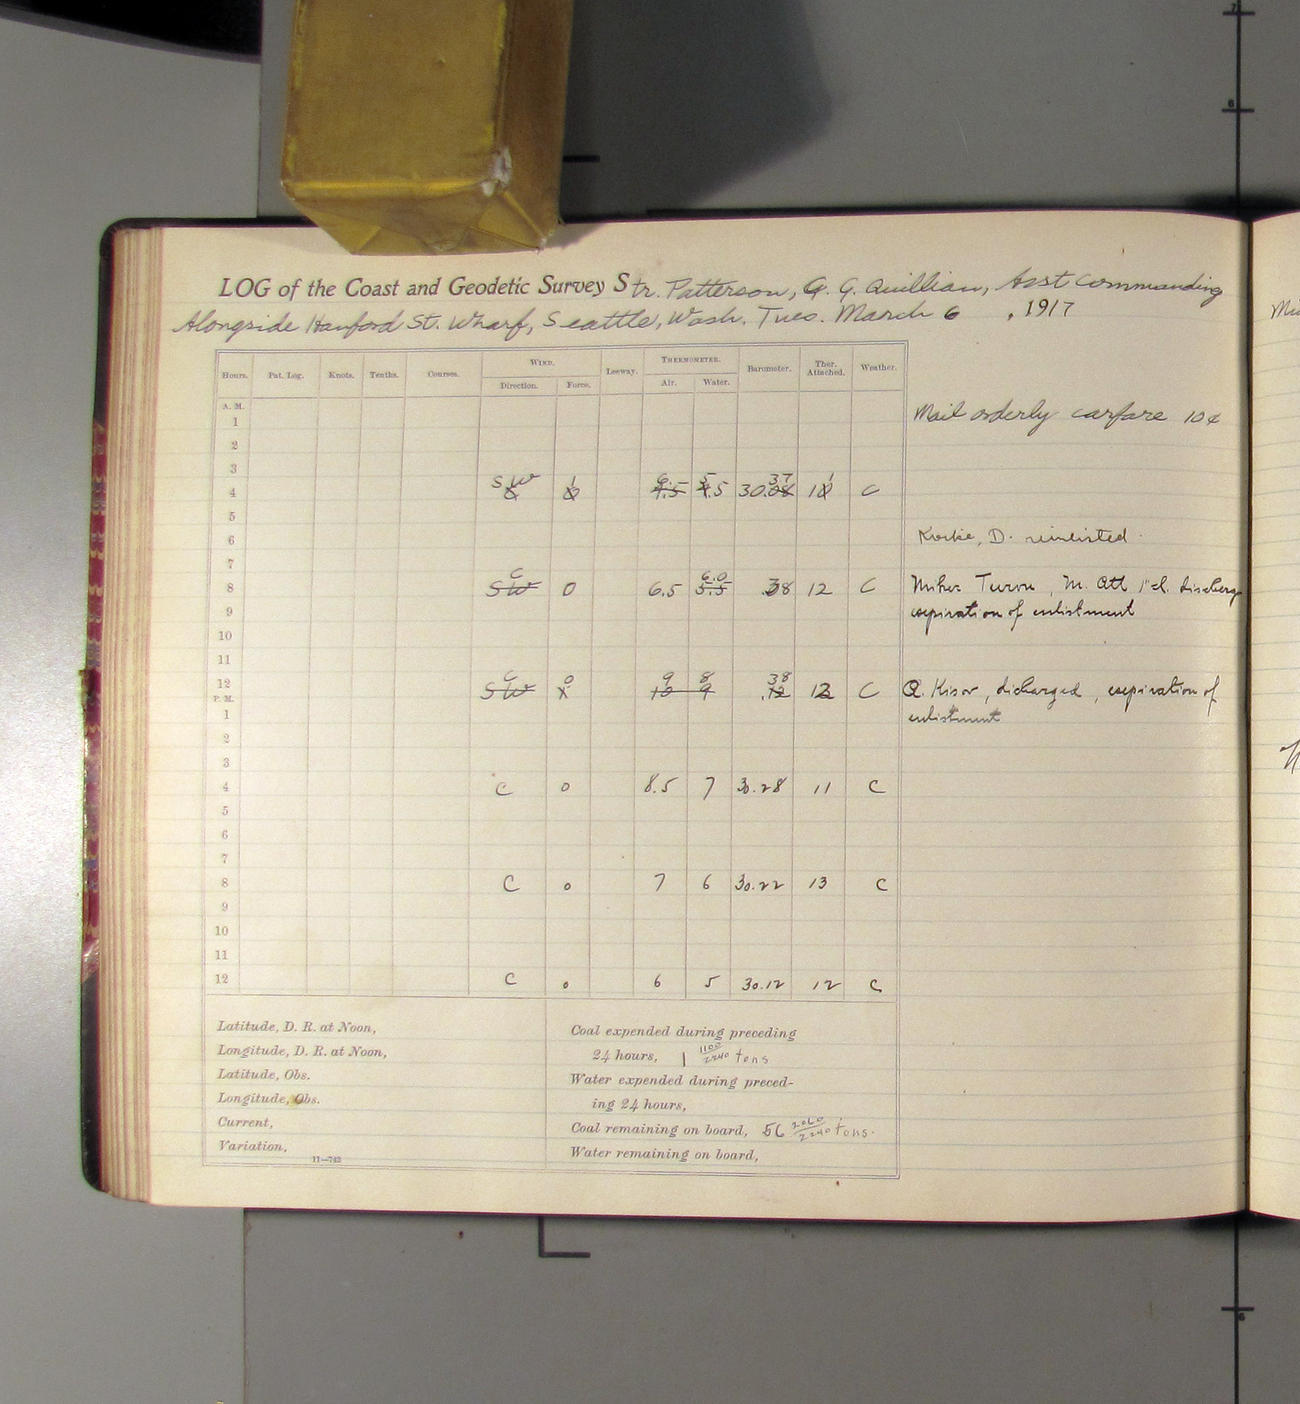 LOG of the Coast and Geodetic Survey Str. Patterson, G. G. Quillian, Asst Commanding
Alongside Hanford St. Wharf, Seattle, Wash. Tues. March 6, 1917
Hours. Pat. Log. Knots. Tenths. Courses. WIND. Direction. Force. Leeway. THERMOMETER. Air. Water. Barometer. Ther. Attached. Weather.
A. M.
1 Mail orderly carfare 10¢
2
3
4 SW 1 6.5 5.5 30.37 11 C
5
6 D. reinlisted.
7
8 C SW 0 6.5 6.0 5.5 .38 12 C M. Att 1"cl. discharg
9 expiration of enlistment
10
11
12 C SW 0 9 10 8 9 .38 12 C Q. Kisor, dicharged, expiration of
P. M.
1 enlistment
2
3
4 C 0 8.5 7 30.28 11 C
5
6
7
8 C 0 7 6 30.22 13 C
9
10
11
12 C 0 6 5 30.12 12 C
Latitude, D. R. at Noon,
Longitude, D. R. at Noon,
Latitude, Obs.
Longitude, Obs.
Current,
Variation,
11—742
Coal expended during preceding
24 hours, 1 1100/2240 tons
Water expended during preced-
ing 24 hours,
Coal remaining on board, 56 2060/2240 tons.
Water remaining on board,